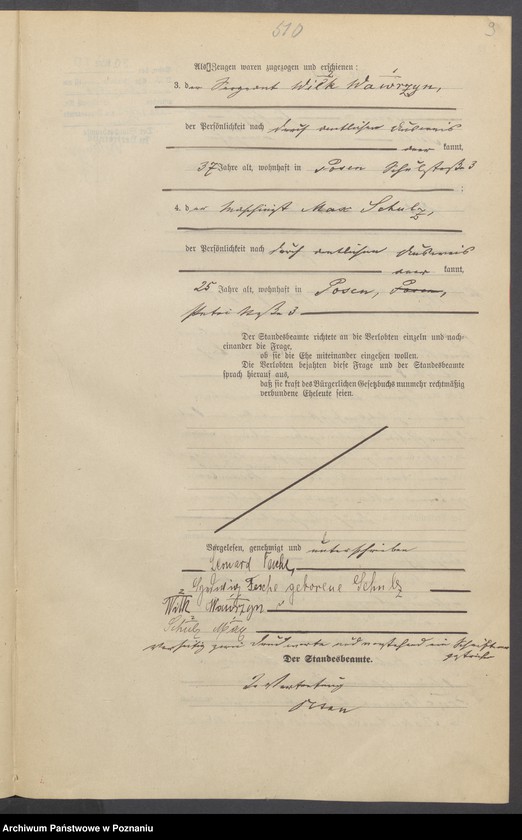 510
9
Als Zeugen waren zugezogen und erschienen:
3. der Sergeant Wilk Wawrzyn,
der Persönlichkeit nach durch amtlichen Ausweis
kannt,
37 Jahre alt, wohnhaft in Posen Schulstraße 3
;
4. der Maschinist Max Schulz,
der Persönlichkeit nach durch amtlichen Ausweis
kannt,
25 Jahre alt, wohnhaft in Posen, Posen,
3
Der Standesbeamte richtete an die Verlobten einzeln und nach-
einander die Frage,
ob sie die Ehe miteinander eingehen wollen.
Die Verlobten bejahten diese Frage und der Standesbeamte
sprach hierauf aus,
daß sie kraft des Bürgerlichen Gesetzbuchs nunmehr rechtmäßig
verbundene Eheleute seien.
Vorgelesen, genehmigt und unterschrieben
Leonard
geborene Schulz
Wilk Wawrzyn
Schulz Max
Der Standesbeamte.
In Vertretung
Archiwum Państwowe w Poznaniu